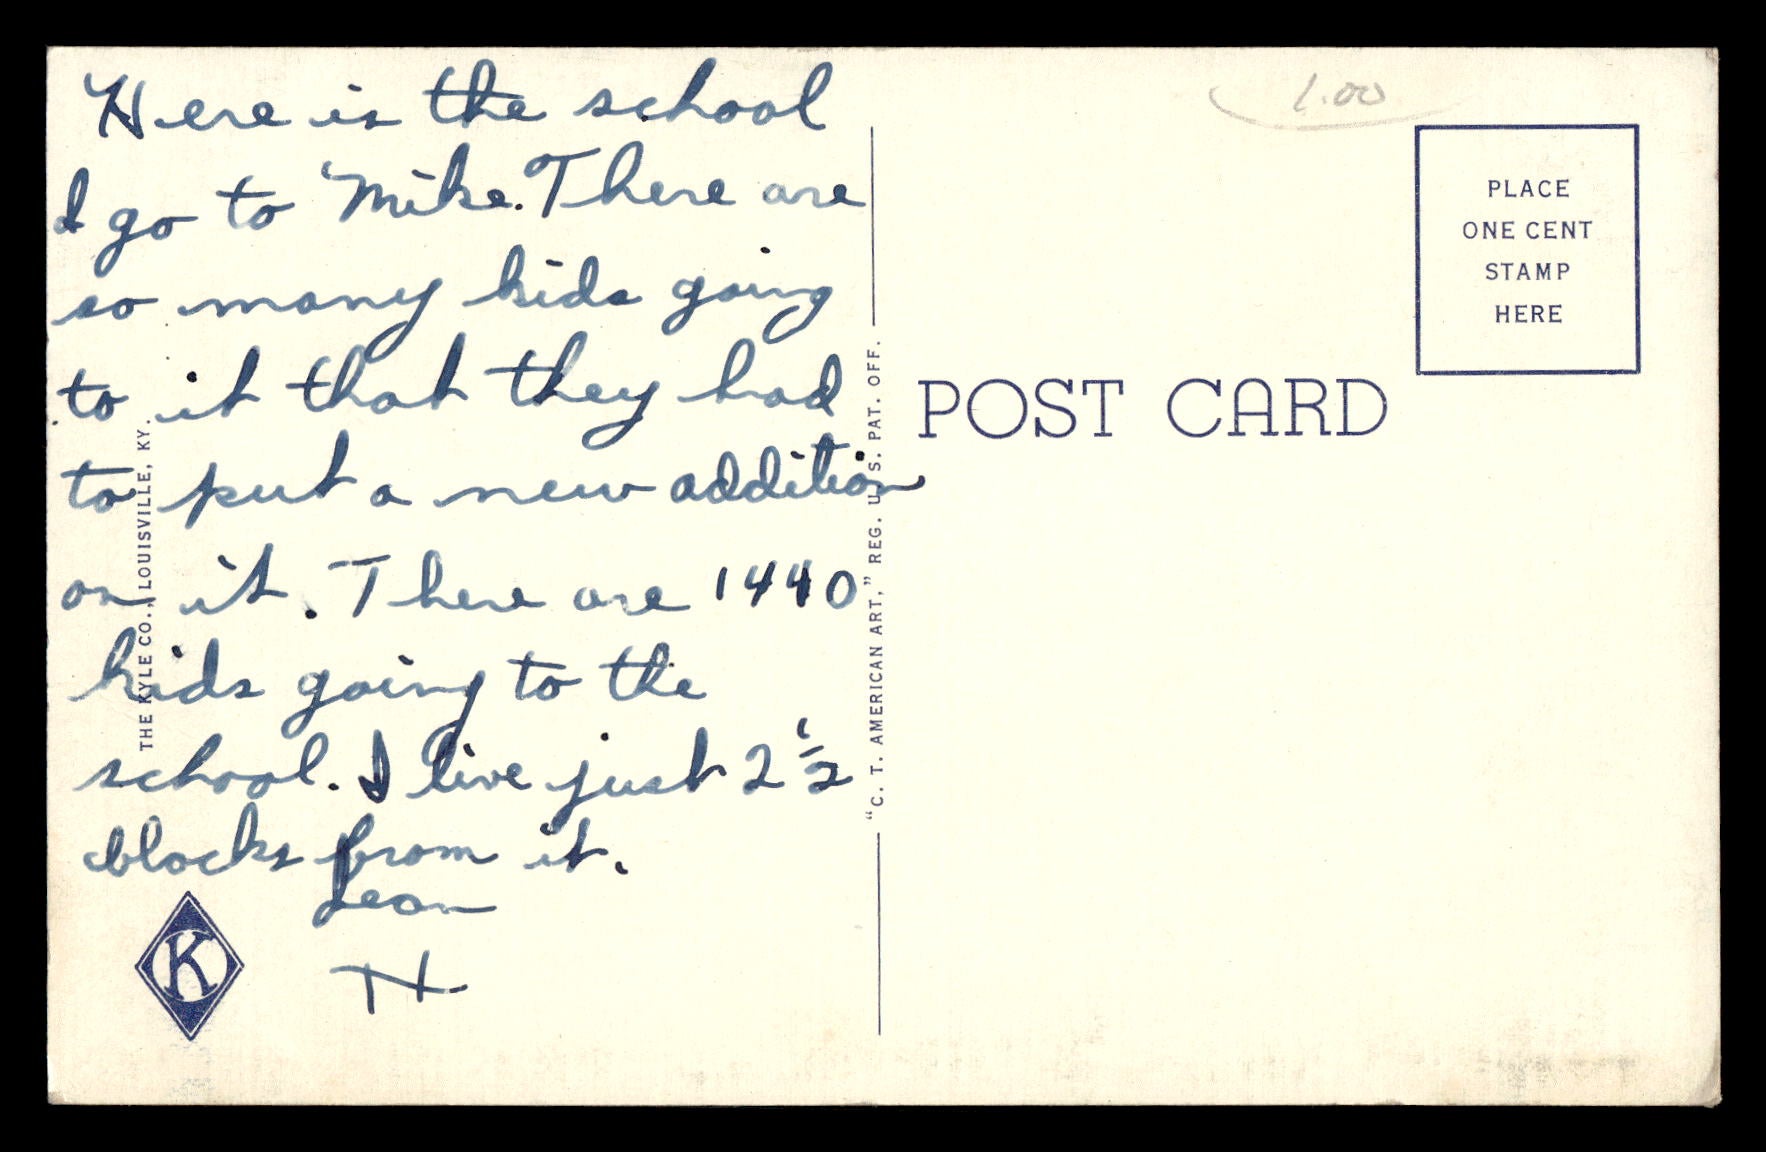 Here is the school
I go to Mike. There are
so many kids going
to it that they had
to put a new addition
on it. There are 1440
kids going to the
school. I live just 2 1/2
blocks from it.
Leon
H
THE KYLE CO., LOUISVILLE, KY.
K
"C. T. AMERICAN ART," REG. U. S. PAT. OFF.
1.00
PLACE
ONE CENT
STAMP
HERE
POST CARD